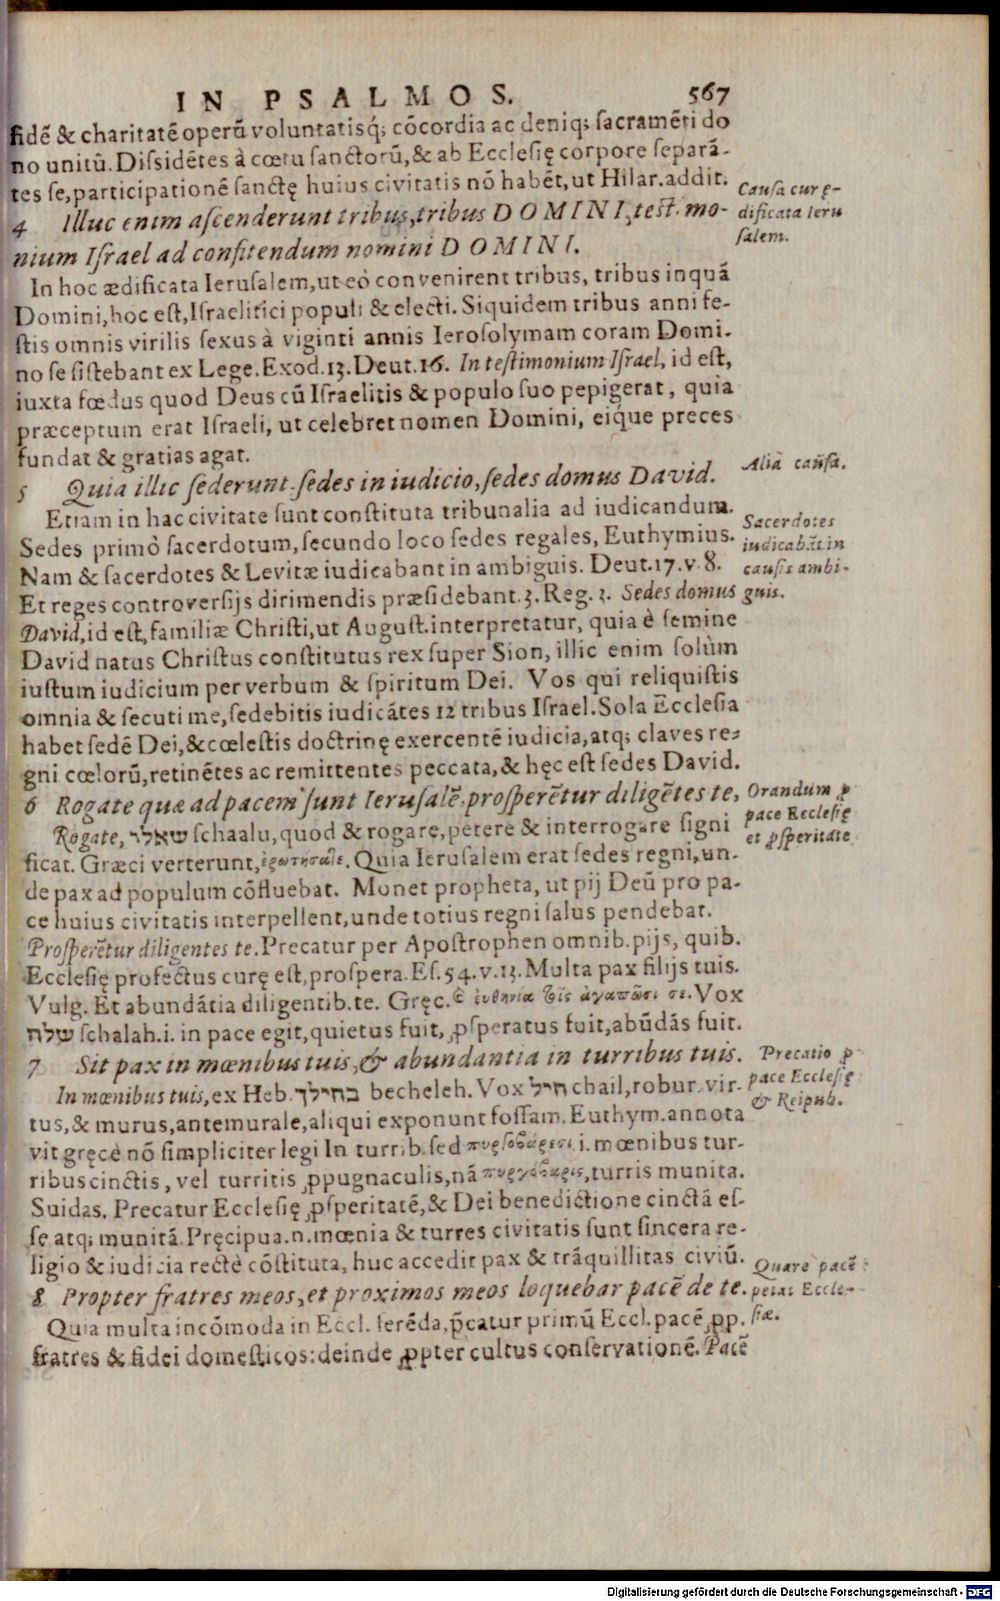 IN PSALMOS. 567
fidē & charitatē operū voluntatisq́; cōcordia ac deniq; sacramēti do
no unitū. Dissidētes à cœtu sanctorū, & ab Ecclesię corpore separā-
tes se, participationē sanctę huius civitatis nō habēt, ut Hilar. addit.
Causa cur ę-
dificata Ieru
salem.
4 Illuc enim ascenderunt tribus, tribus DOMINI, test. mo-
nium Israel ad confitendum nomini DOMINI.
In hoc ædificata Ierusalem, ut eò convenirent tribus, tribus inquā
Domini, hoc est, Israelitici populi & electi. Siquidem tribus anni fe-
stis omnis virilis sexus à viginti annis Ierosolymam coram Domi-
no se sistebant ex Lege. Exod. 13. Deut. 16. In testimonium Israel, id est,
iuxta fœdus quod Deus cū Israelitis & populo suo pepigerat, quia
præceptum erat Israeli, ut celebret nomen Domini, eique preces
fundat & gratias agat.
Alia causa.
5 Quia illic sederunt sedes in iudicio, sedes domus David.
Etiam in hac civitate sunt constituta tribunalia ad iudicandum.
Sedes primò sacerdotum, secundo loco sedes regales, Euthymius.
Nam & sacerdotes & Levitæ iudicabant in ambiguis. Deut. 17. v. 8.
Sacerdotes
iudicabāt in
causis ambi-
guis.
Et reges controversijs dirimendis præsidebant. 3. Reg. 3. Sedes domus
David, id est, familiæ Christi, ut August. interpretatur, quia è semine
David natus Christus constitutus rex super Sion, illic enim solùm
iustum iudicium per verbum & spiritum Dei. Vos qui reliquistis
omnia & secuti me, sedebitis iudicātes 12 tribus Israel. Sola Ecclesia
habet sedē Dei, & cœlestis doctrinę exercentē iudicia, atq; claves re-
gni cœlorū, retinētes ac remittentes peccata, & hęc est sedes David.
6 Rogate quæ ad pacem sunt Ierusalē, prosperētur diligētes te,
Orandum ꝓ
pace Ecclesię
et ꝓsperitate
Rogate, שאלו schaalu, quod & rogare, petere & interrogare signi
ficat. Græci verterunt, ἐρωτήσατε. Quia Ierusalem erat sedes regni, un-
de pax ad populum cōfluebat. Monet propheta, ut pij Deū pro pa-
ce huius civitatis interpellent, unde totius regni salus pendebat.
Prosperētur diligentes te. Precatur per Apostrophen omnib. pijs, quib.
Ecclesię profectus curę est, prospera. Es. 54. v. 13. Multa pax filijs tuis.
Vulg. Et abundātia diligentib. te. Gręc. ἐ ευθηνία τοῖς ἀγαπῶσι σε. Vox
שלה schalah. i. in pace egit, quietus fuit, ꝓsperatus fuit, abūdās fuit.
7 Sit pax in mœnibus tuis, & abundantia in turribus tuis.
Precatio ꝓ
pace Ecclesię
& Reipub.
In mœnibus tuis, ex Heb. בחילך becheleh. Vox חיל chail, robur, vir-
tus, & murus, antemurale, aliqui exponunt fossam. Euthym. annota
vit gręcè nō simpliciter legi In turrib. sed πυργοβάρεσι. i. mœnibus tur-
ribus cinctis, vel turritis ꝓpugnaculis, nā πυργόβαρις, turris munita.
Suidas. Precatur Ecclesię ꝓsperitatē, & Dei benedictione cinctā es-
se atq; munitā. Pręcipua. n. mœnia & turres civitatis sunt sincera re-
ligio & iudicia rectè cōstituta, huc accedit pax & trāquillitas civiū.
Quare pacē
petat Eccle-
siæ.
8 Propter fratres meos, et proximos meos loquebar pacē de te.
Quia multa incōmoda in Eccl. ferēda, p̄catur primū Eccl. pacē ꝓp.
fratres & fidei domesticos: deinde ꝓpter cultus conservationē. Pacē
Digitalisierung gefördert durch die Deutsche Forschungsgemeinschaft - DFG